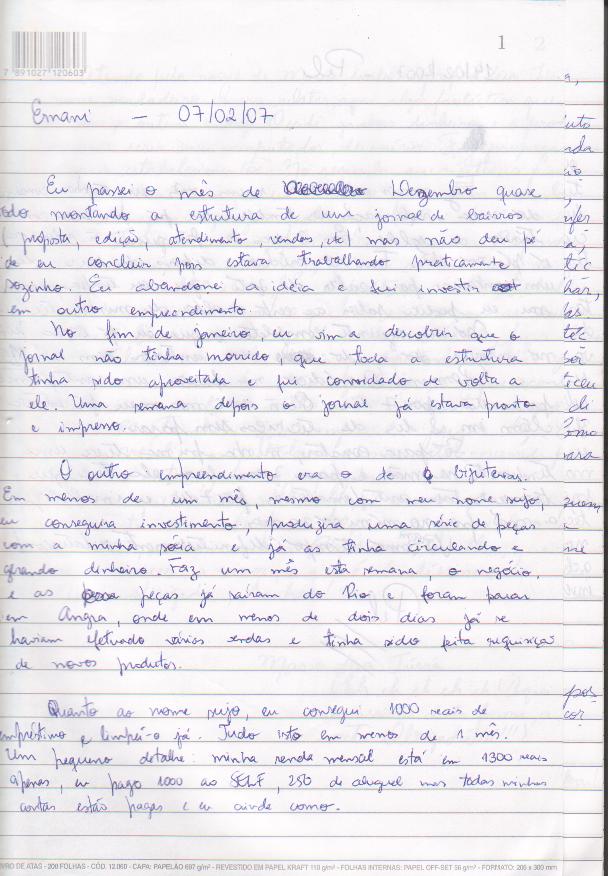 1 2
7 891027 120603
Ernani - 07/02/07
Eu passei o mês de Dezembro quase
odo montando a estrutura de um jornal de bairros
(proposta, edição, atendimento, vendas, etc) mas não deu pé
de eu concluir pois estava trabalhando praticamente
sozinho. Eu abandonei a ideia e fui investir
em outro empreendimento.
No fim de janeiro, eu vim a descobrir que o
jornal não tinha morrido, que toda a estrutura
tinha sido aproveitada e fui convidado de volta a
ele. Uma semana depois o jornal já estava pronto
e impresso.
O outro empreendimento era o de bijuterias.
Em menos de um mês, mesmo com meu nome sujo,
eu conseguira investimento, produzira uma série de peças
com a minha sócia e já as tinha circulando e
gerando dinheiro. Faz um mês esta semana o negócio,
e as peças já sairam do Rio e foram parar
em Angra, onde em menos de dois dias já se
haviam efetuado várias vendas e tinha sido feita requisição
de novos produtos.
Quanto ao nome sujo, eu consegui 1000 reais de
empréstimo e limpei-o já. Tudo isto em menos de 1 mês.
Um pequeno detalhe: minha renda mensal está em 1300 reais
apenas, eu pago 1000 ao SELF, 250 de aluguel mas todas minhas
contas estão pagas e eu ainda como.
IVRO DE ATAS - 200 FOLHAS - CÓD. 12.060 - CAPA: PAPELÃO 697 g/m² - REVESTIDO EM PAPEL KRAFT 110 g/m² - FOLHAS INTERNAS: PAPEL OFF-SET 56 g/m² - FORMATO: 206 x 300 mm